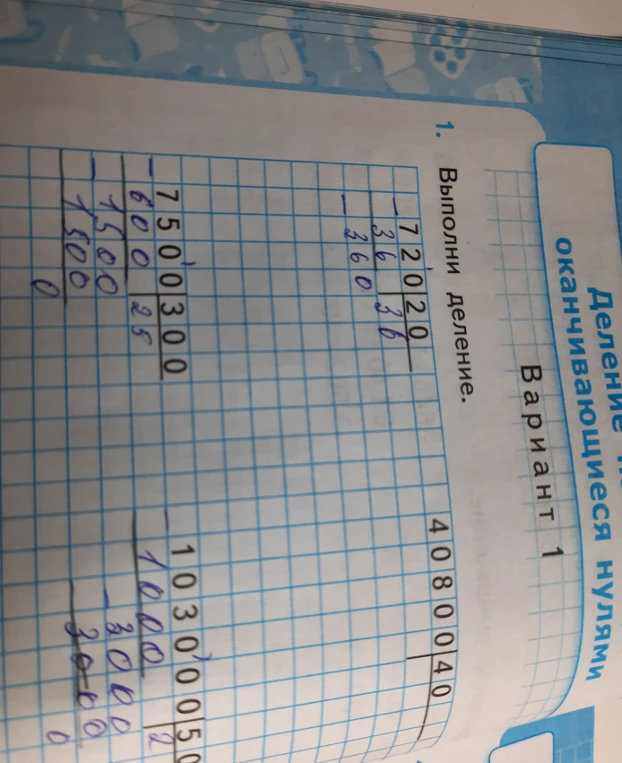 Деление
оканчивающиеся нулями
Вариант 1
1. Выполни деление.
720 20
- 36 36
- 360
40800 40
7500 300
- 600 25
- 1500
1500
0
103000 50
- 1000 2
- 3000
3000
0